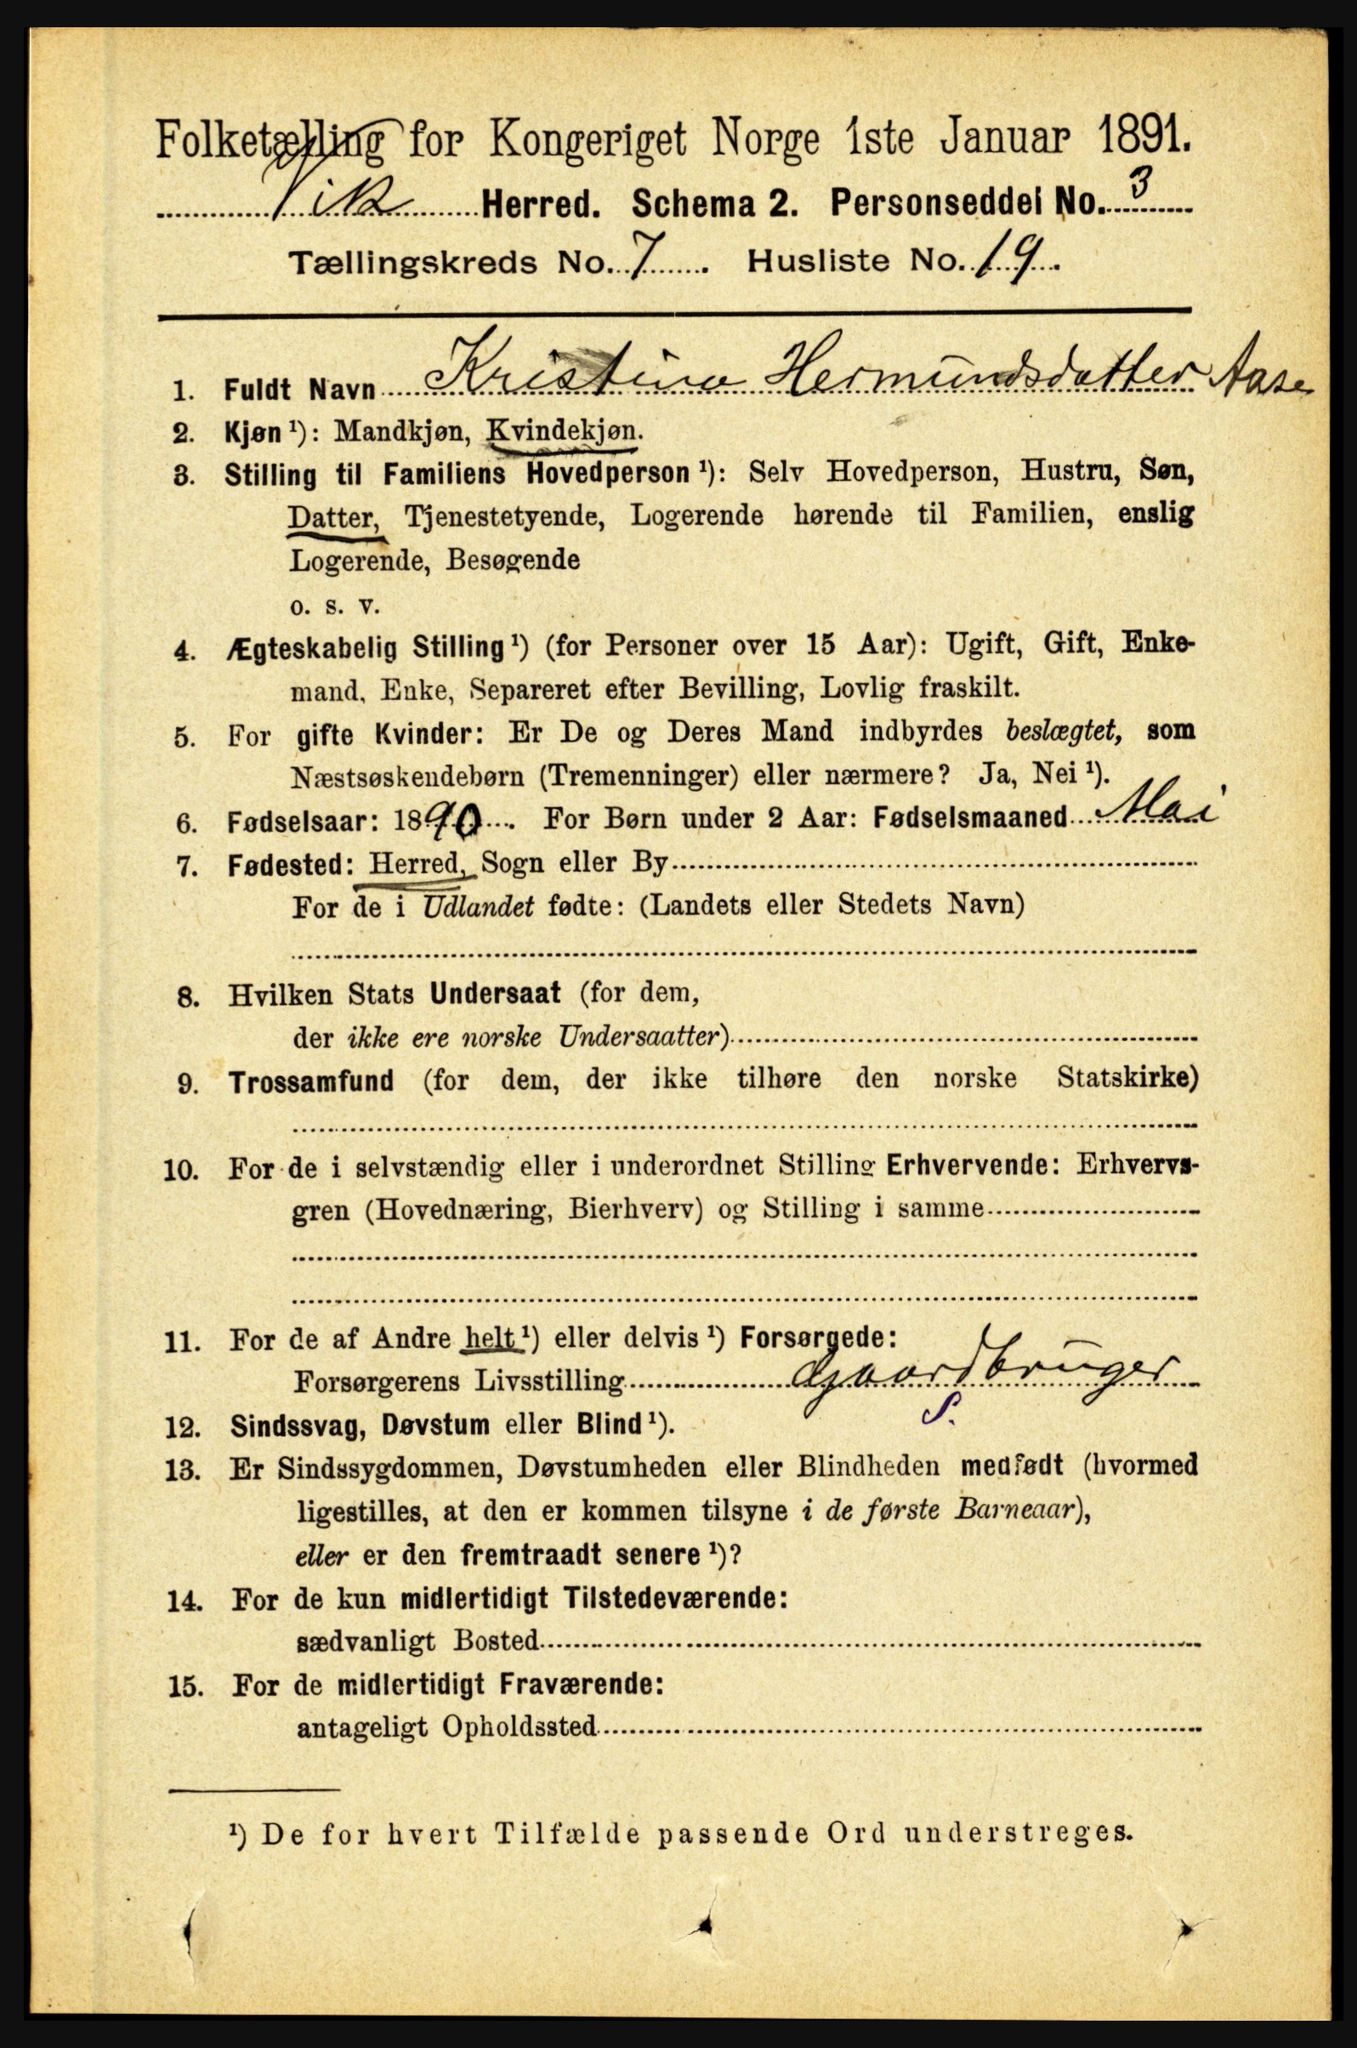 Folketælling for Kongeriget Norge 1ste Januar 1891.
Vik Herred. Schema 2. Personseddel No. 3
Tællingskreds No. 7 Husliste No. 19.
1. Fuldt Navn Kristina Hermundsdatter Aase
2. Kjøn ¹): Mandkjøn, Kvindekjøn.
3. Stilling til Familiens Hovedperson ¹): Selv Hovedperson, Hustru, Søn,
Datter, Tjenestetyende, Logerende hørende til Familien, enslig
Logerende, Besøgende
o. s. v.
4. Ægteskabelig Stilling ¹) (for Personer over 15 Aar): Ugift, Gift, Enke-
mand, Enke, Separeret efter Bevilling, Lovlig fraskilt.
5. For gifte Kvinder: Er De og Deres Mand indbyrdes beslægtet, som
Næstsøskendebørn (Tremenninger) eller nærmere? Ja, Nei ¹).
6. Fødselsaar: 1890. For Børn under 2 Aar: Fødselsmaaned Mai
7. Fødested: Herred, Sogn eller By
For de i Udlandet fødte: (Landets eller Stedets Navn)
8. Hvilken Stats Undersaat (for dem,
der ikke ere norske Undersaatter)
9. Trossamfund (for dem, der ikke tilhøre den norske Statskirke)
10. For de i selvstændig eller i underordnet Stilling Erhvervende: Erhvervs-
gren (Hovednæring, Bierhverv) og Stilling i samme
11. For de af Andre helt ¹) eller delvis ¹) Forsørgede:
Forsørgerens Livsstilling Gaardbruger
S.
12. Sindssvag, Døvstum eller Blind ¹).
13. Er Sindssygdommen, Døvstumheden eller Blindheden medfødt (hvormed
ligestilles, at den er kommen tilsyne i de første Barneaar),
eller er den fremtraadt senere ¹)?
14. For de kun midlertidigt Tilstedeværende:
sædvanligt Bosted
15. For de midlertidigt Fraværende:
antageligt Opholdssted
¹) De for hvert Tilfælde passende Ord understreges.